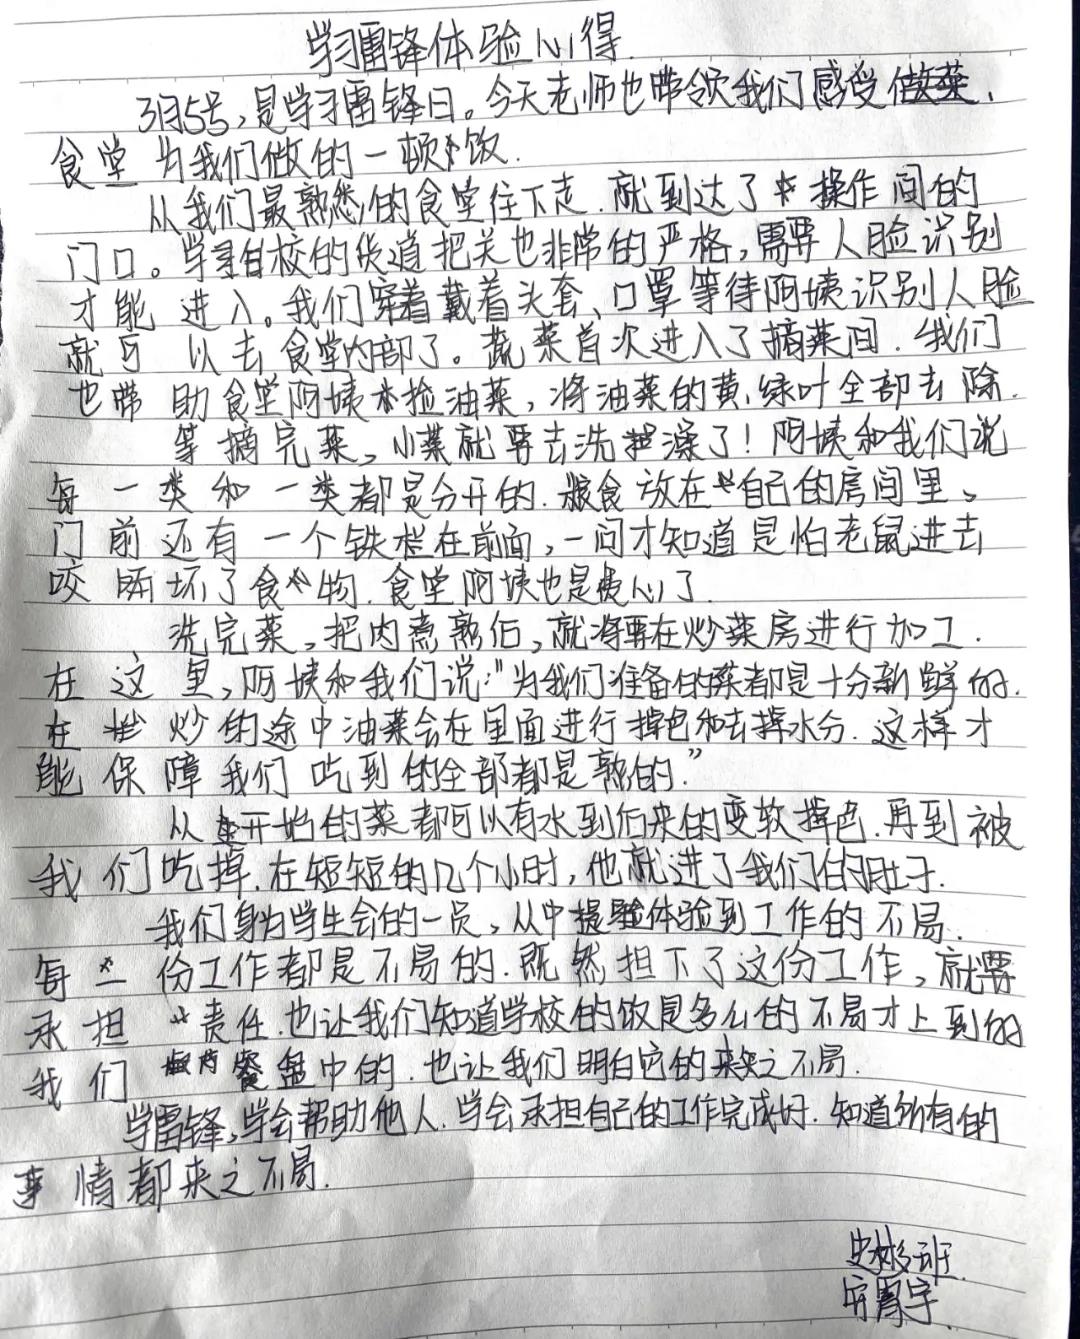 学习雷锋体验心得.
3月5号,是学习雷锋日。今天老师也带领我们感受做菜、
食堂为我们做的一顿饭.
从我们最熟悉的食堂往下走.就到达了操作间的
门口。学校的货道把关也非常的严格,需要人脸识别
才能进入。我们穿着戴着头套、口罩等待阿姨识别人脸
就可以去食堂内部了。蔬菜首次进入了摘菜间.我们
也带助食堂阿姨捡油菜,将油菜的黄、绿叶全部去除.
等摘完菜,小菜就要去洗澡了!阿姨和我们说
每一类和一类都是分开的.粮食放在自己的房间里、
门前还有一个铁栏在前面,一问才知道是怕老鼠进去
咬坏了食物.食堂阿姨也是费心了.
洗完菜,把肉煮熟后,就将要在炒菜房进行加工.
在这里,阿姨和我们说:"为我们准备的菜都是十分新鲜的.
在炒的途中油菜会在里面进行掉色和去掉水分.这样才
能保障我们吃到的全部都是熟的."
从开始的菜都可以有水到后来的变软掉色.再到被
我们吃掉.在短短的几个小时,他就进了我们的肚子.
我们身为学生会的一员,从中体验到工作的不易.
每一份工作都是不易的.既然担下了这份工作,就要
承担责任.也让我们知道学校的饭是多么的不易才上到的
我们餐盘中的.也让我们明白它的来之不易.
学雷锋,学会帮助他人.学会承担自己的工作完成好.知道所有的
事情都来之不易.
班